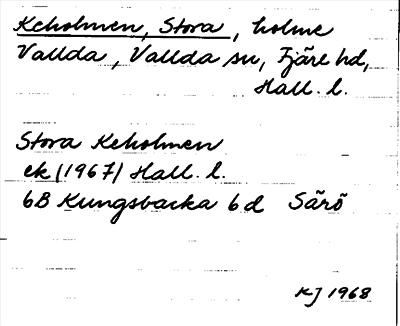 Keholmen, Stora, holme
Vallda, Vallda sn, Fjäre hd,
Hall. l.
Stora Keholmen
ek (1967) Hall. l.
6B Kungsbacka 6d Särö
KJ 1968